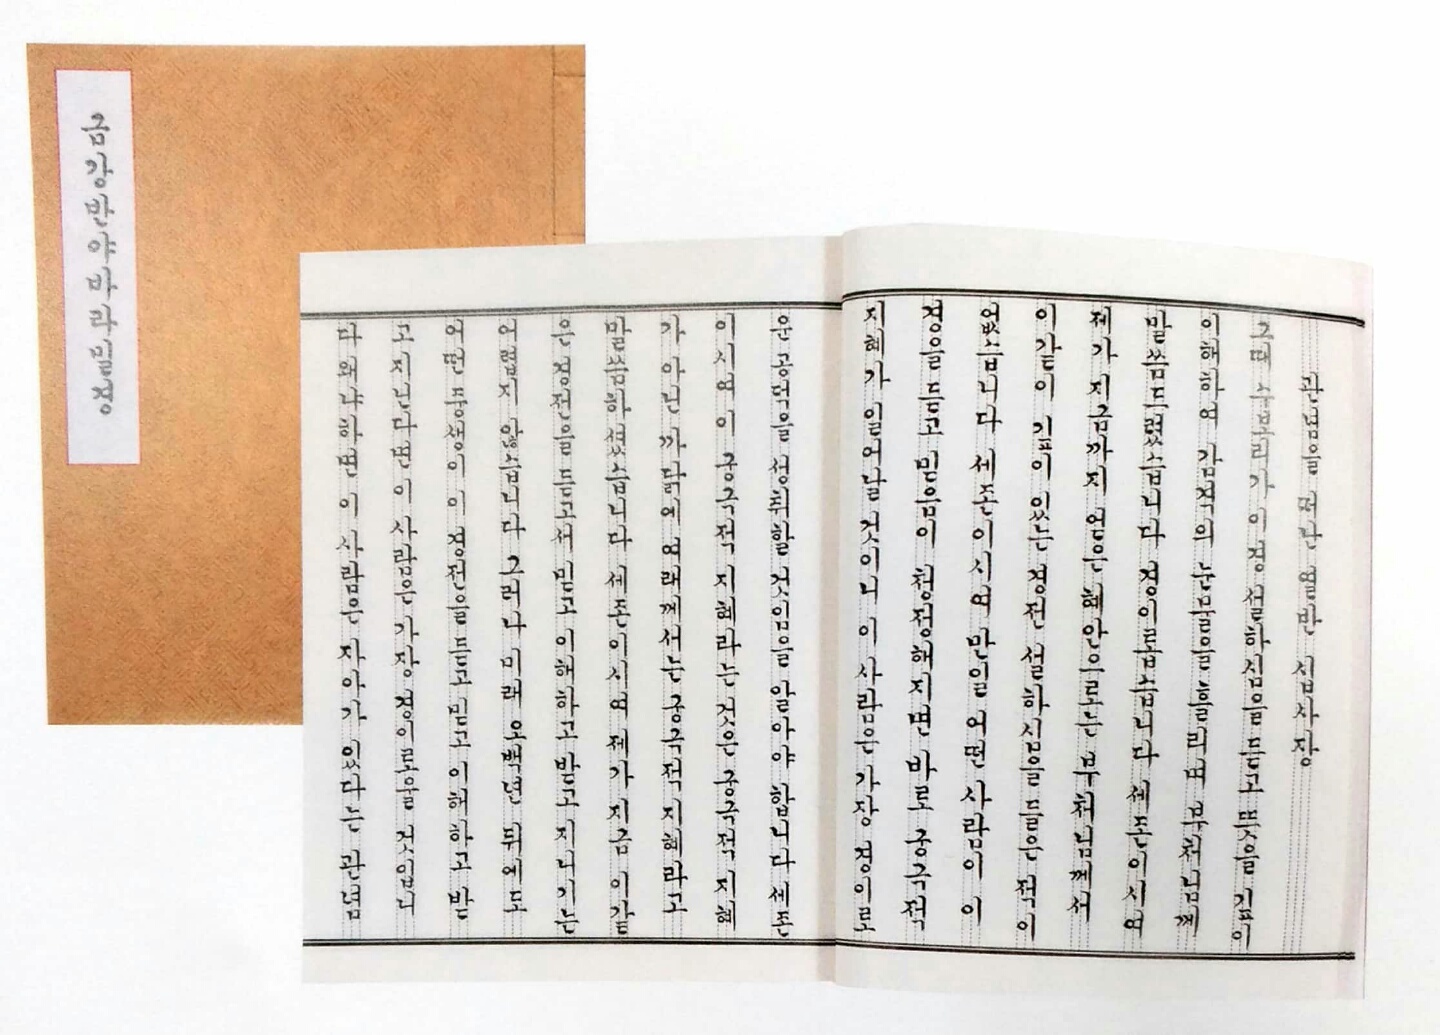 금강반야바라밀경
관념을 떠난 열반 십사장
그때 수보리가 이 경 설하심을 듣고 뜻을 깊이
이해하여 감격의 눈물을 흘리며 부처님께
말씀드렸습니다 경이롭습니다 세존이시여
제가 지금까지 얻은 혜안으로는 부처님께서
이같이 깊이 있는 경전 설하심을 들은 적이
없습니다 세존이시여 만일 어떤 사람이 이
경을 듣고 믿음이 청정해지면 바로 궁극적
지혜가 일어날 것이니 이 사람은 가장 경이로
운 공덕을 성취할 것임을 알아야 합니다 세존
이시여 이 궁극적 지혜라는 것은 궁극적 지혜
가 아닌 까닭에 여래께서는 궁극적 지혜라고
말씀하셨습니다 세존이시여 제가 지금 이같
은 경전을 듣고서 믿고 이해하고 받고 지니기는
어렵지 않습니다 그러나 미래 오백년 뒤에도
어떤 중생이 이 경전을 듣고 믿고 이해하고 받
고 지닌다면 이 사람은 가장 경이로울 것입니
다 왜냐하면 이 사람은 자아가 있다는 관념